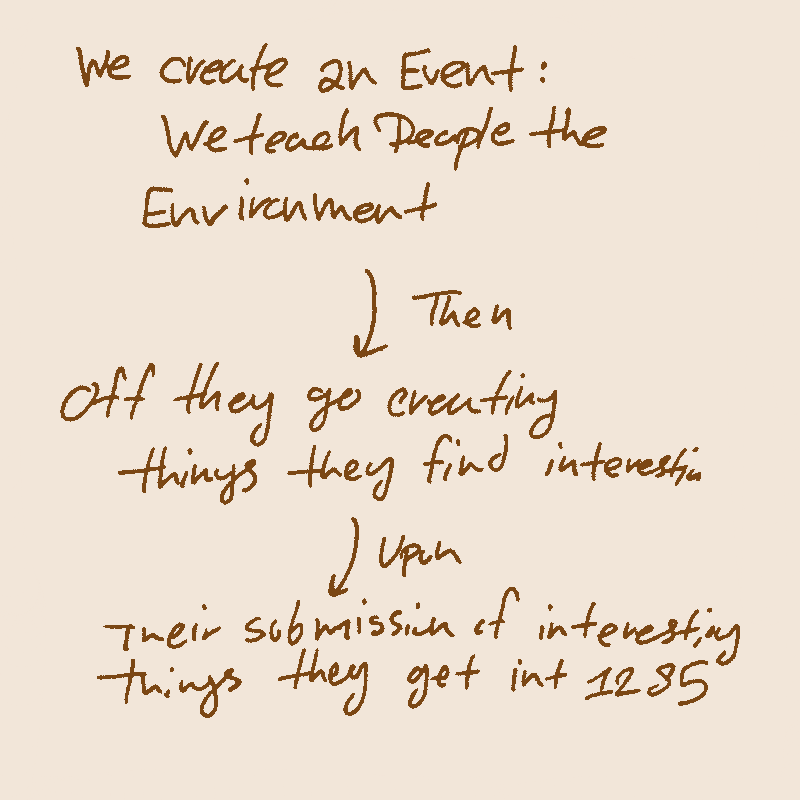 We create an Event:
We teach People the
Environment
Then
Off they go creating
things they find interestin
Upon
Their submission of interesting
things they get int 1285